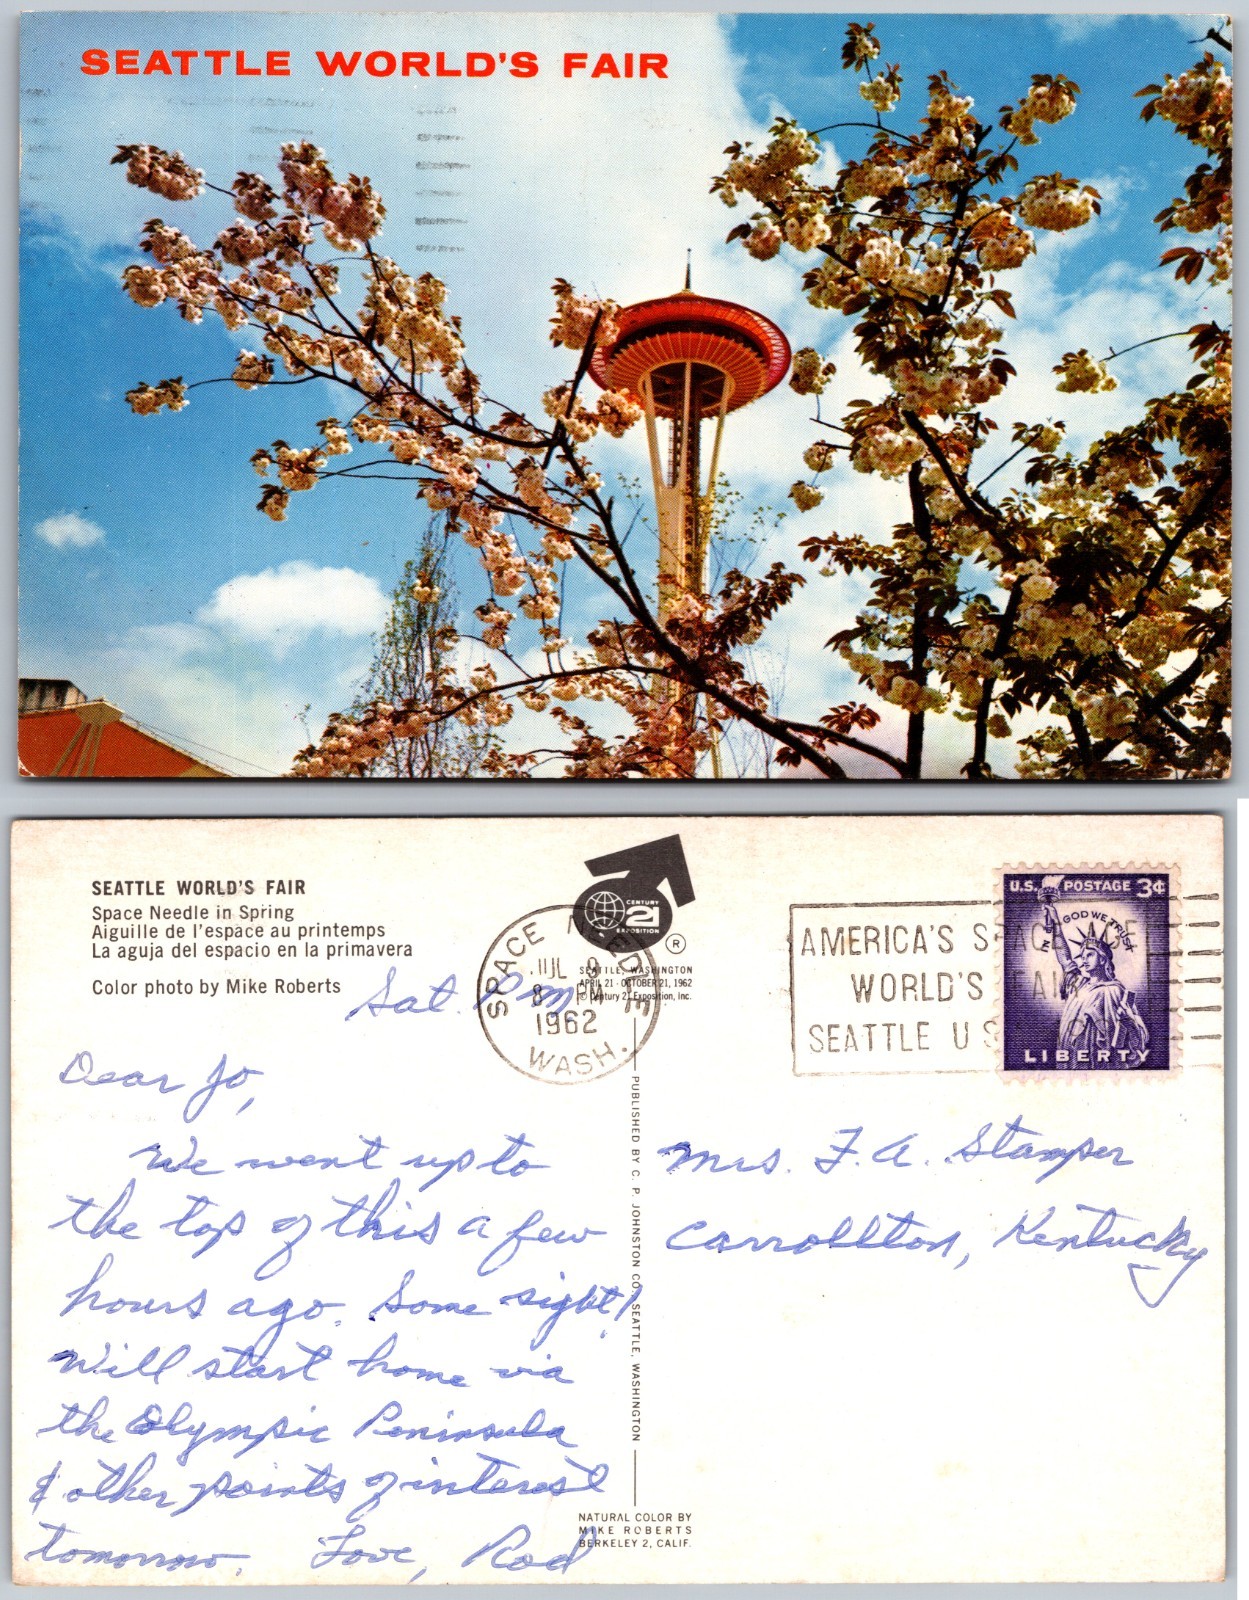 SEATTLE WORLD'S FAIR
SEATTLE WORLD'S FAIR
Space Needle in Spring
Aiguille de l'espace au printemps
La aguja del espacio en la primavera
Color photo by Mike Roberts
CENTURY
21
EXPOSITION
®
SEATTLE, WASHINGTON
APRIL 21 - OCTOBER 21, 1962
© Century 21 Exposition, Inc.
SPACE NEEDLE
JUL 9
8 PM
1962
WASH.
AMERICA'S SPACE AGE
WORLD'S FAIR
SEATTLE U S
U.S. POSTAGE 3¢
IN GOD WE TRUST
LIBERTY
Sat. P.m.
Dear Jo,
We went up to
the top of this a few
hours ago. Some sight!
Will start home via
the Olympic Peninsula
& other points of interest
tomorrow. Love, Rod
Mrs. F. A. Stamper
Carrollton, Kentucky
PUBLISHED BY C. P. JOHNSTON CO. SEATTLE, WASHINGTON
NATURAL COLOR BY
MIKE ROBERTS
BERKELEY 2, CALIF.